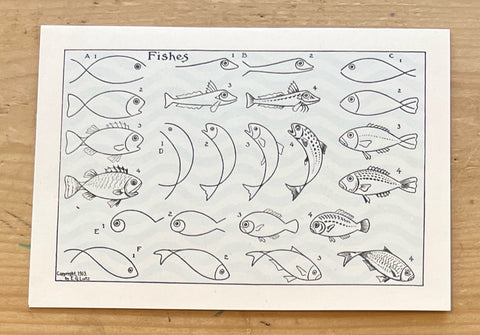 Fishes
A 1
1 B
2
C
1
2
3
4
2
3
4
3
4
2
3
4
1
D
E
1
2
3
4
F
1
2
3
4
Copyright, 1913,
by E.G. Lutz